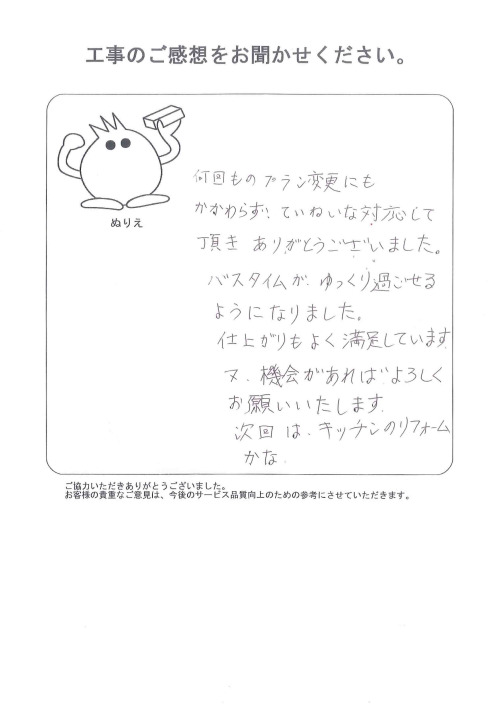 工事のご感想をお聞かせください。
ぬりえ
何回ものプラン変更にも
かかわらず、ていねいな対応して
頂き ありがとうございました。
バスタイムが、ゆっくり過ごせる
ようになりました。
仕上がりもよく満足しています
又、機会があればよろしく
お願いいたします。
次回は、キッチンのリフォーム
かな。
ご協力いただきありがとうございました。
お客様の貴重なご意見は、今後のサービス品質向上のための参考にさせていただきます。